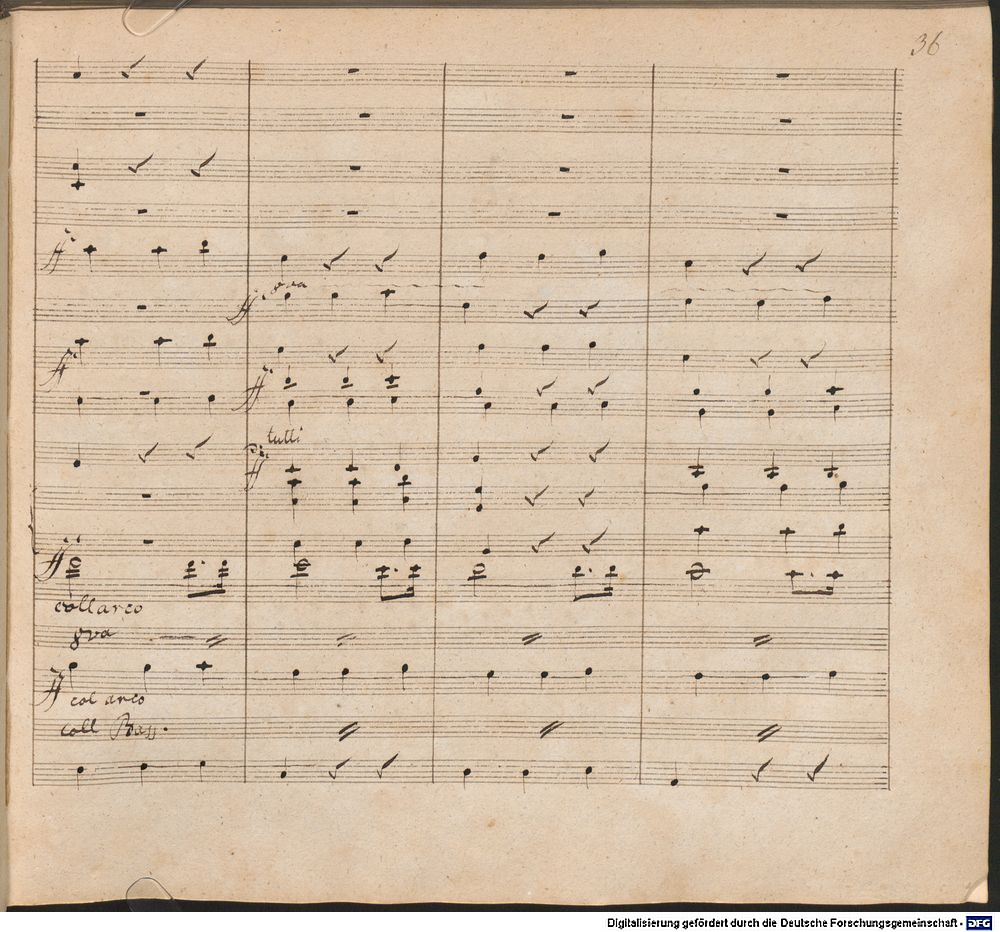 36
ff.
8va
ff.
ff.
ff.
tutti
ff.
ff
collarco
8va
ff
col arco
coll Bass.
Digitalisierung gefördert durch die Deutsche Forschungsgemeinschaft - DFG